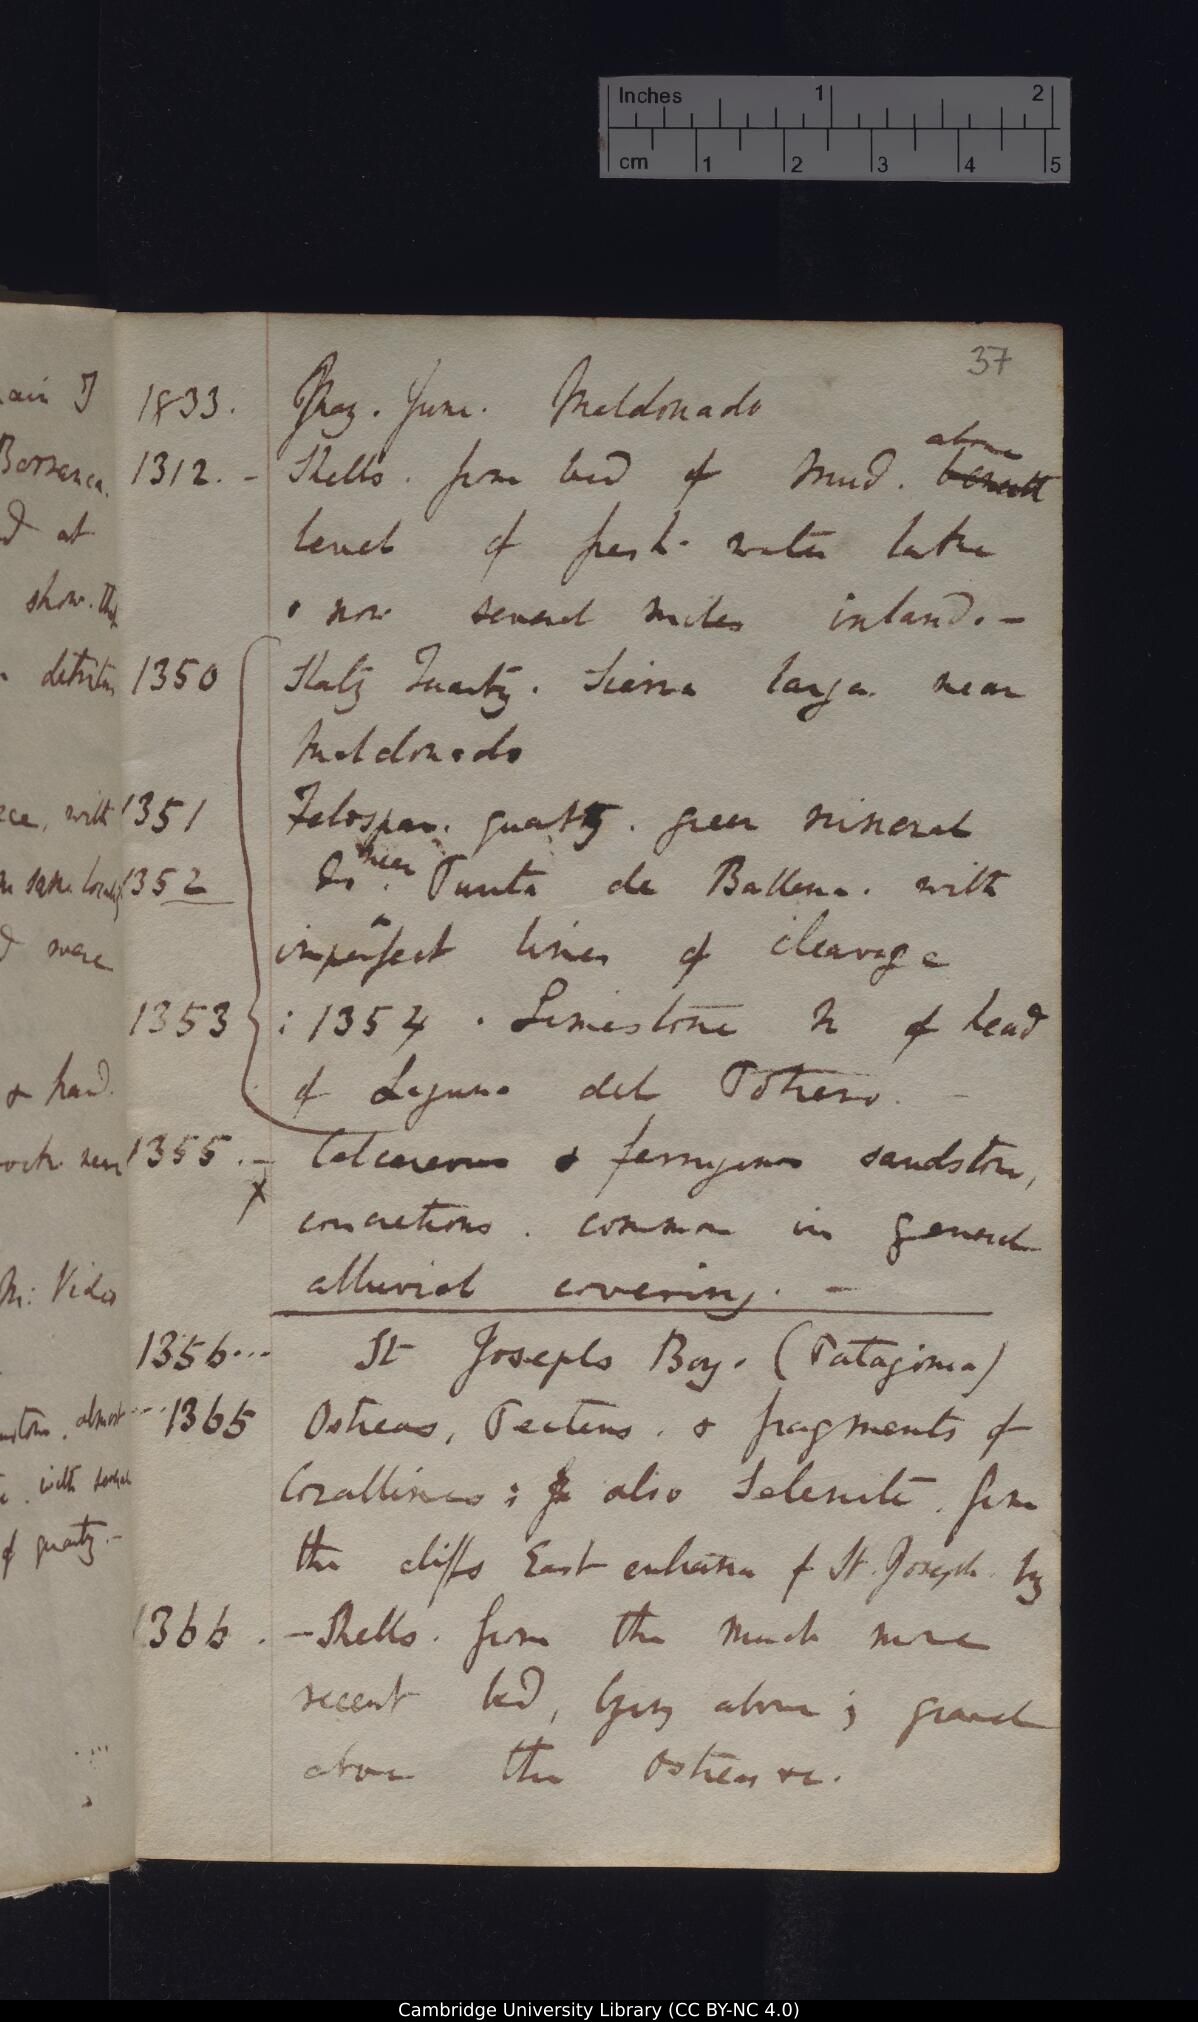 Inches 1 2
cm 1 2 3 4 5
37
1833. May. June. Maldonado
above
1312. - Shells. from bed of Mud. beneath
level of fresh-water lake
& now several miles inland. -
1350 Slaty Quartz. Sierra larga near
Maldonado
1351 Felospar. quartz. green mineral
near
1352 Do. Punta de Ballena. with
imperfect lines of cleavage
1353 : 1354. Limestone N of head
of Laguna del Potrero. -
1355. - Calcareous & ferruginous sandstone,
X
concretions. common in general
alluvial covering. -
1356... St Josephs Bay. (Patagonia)
... 1365 Ostreas, Pectens. & fragments of
Corallines; also Selenite. from
the cliffs East entrance of St. Joseph. by
1366. - Shells. from the much more
recent bed, lying above; gravel
above the Ostreas &c.
ain of
Barranca.
d at
show. the
detritus
ece, with
d were
& hard.
M: Video
almost
with
of quartz. -
Cambridge University Library (CC BY-NC 4.0)